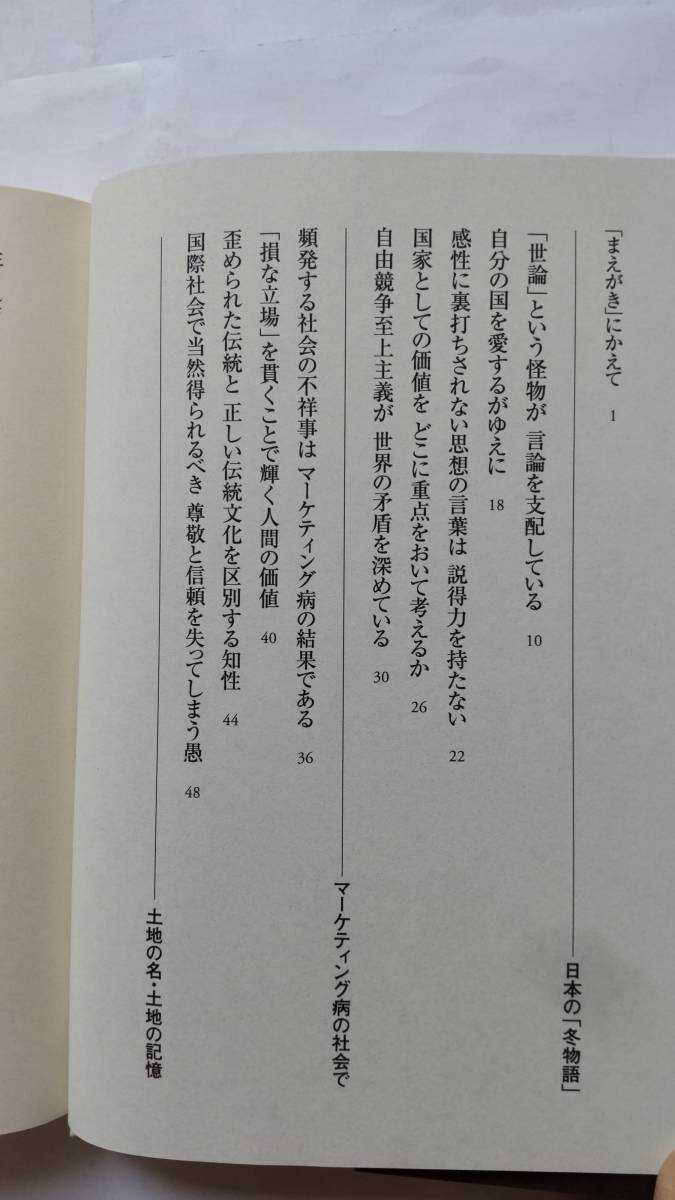 「まえがき」にかえて 1
日本の「冬物語」
「世論」という怪物が 言論を支配している 10
自分の国を愛するがゆえに 18
感性に裏打ちされない思想の言葉は 説得力を持たない 22
国家としての価値を どこに重点をおいて考えるか 26
自由競争至上主義が 世界の矛盾を深めている 30
マーケティング病の社会で
頻発する社会の不祥事は マーケティング病の結果である 36
「損な立場」を貫くことで輝く人間の価値 40
歪められた伝統と 正しい伝統文化を区別する知性 44
国際社会で当然得られるべき 尊敬と信頼を失ってしまう愚 48
土地の名・土地の記憶